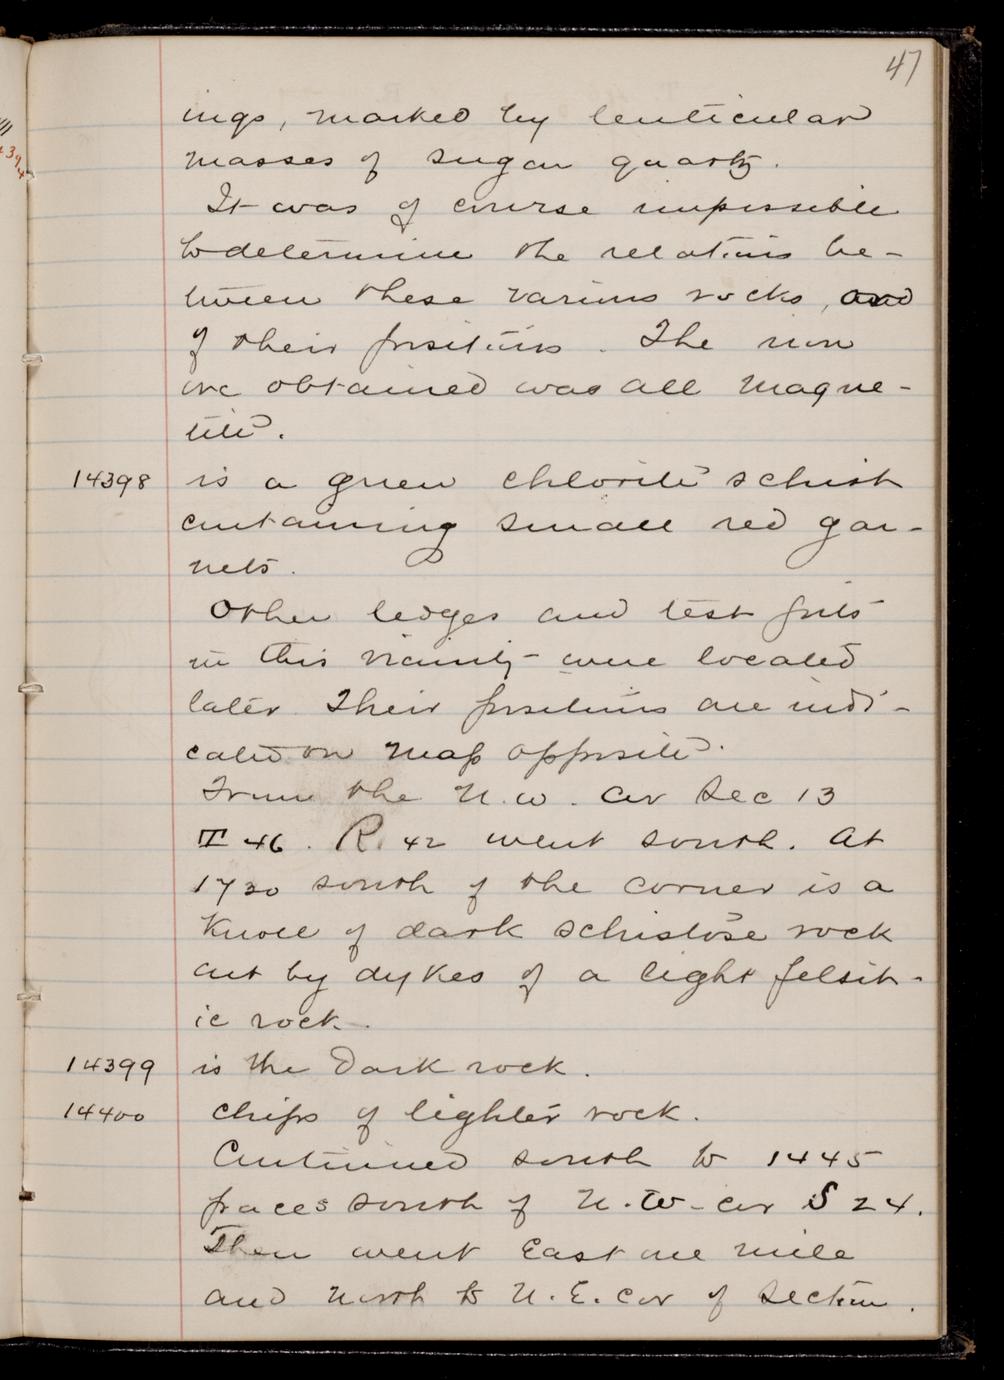 47
ings, marked by lenticular
masses of sugar quartz.
It was of course impossible
to determine the relations be-
tween these various rocks, and
of their positions. The iron
ore obtained was all magne-
tite.
14398 is a green chlorite schist
containing small red gar-
nets.
Other ledges and test pits
in this vicinity were located
later. Their positions are indi-
cated on map opposite.
From the N.W. cor Sec 13
T 46. R. 42 went south. At
1730 south of the corner is a
knoll of dark schistose rock
cut by dykes of a light felsit-
ic rock.
14399 is the dark rock.
14400 chips of lighter rock.
Continued south to 1445
paces south of N.W. cor S 24.
Then went East one mile
and north to N.E. cor of section.